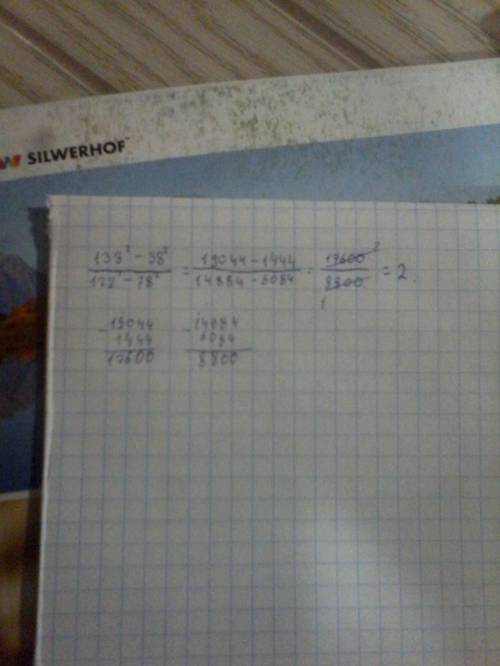 SILWERHOF
138² - 38² / 122² - 78² = 19044 - 1444 / 14884 - 6084 = 17600 2 / 8800 1 = 2.
- 19044 - 14884
1444 6084
17600 8800